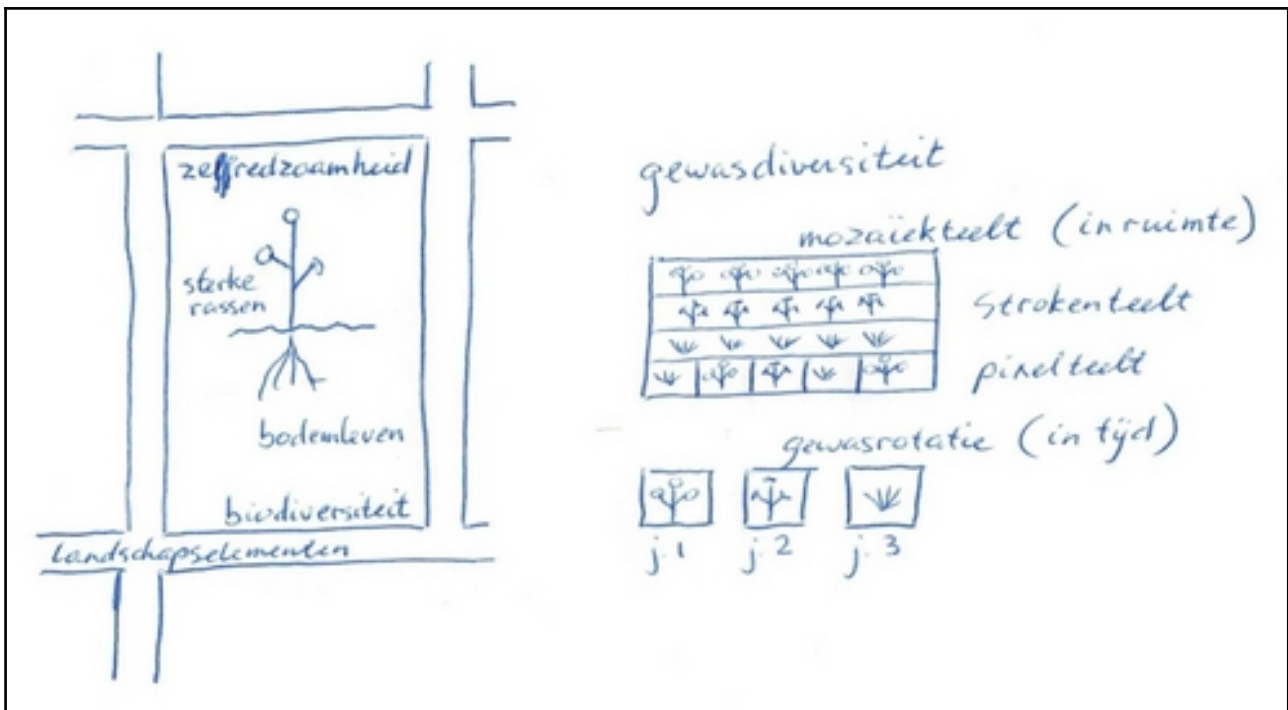 zelfredzaamheid
sterke
rassen
bodemleven
biodiversiteit
landschapselementen
gewasdiversiteit
mozaïekteelt (in ruimte)
strokenteelt
pixelteelt
gewasrotatie (in tijd)
j.1 j.2 j.3